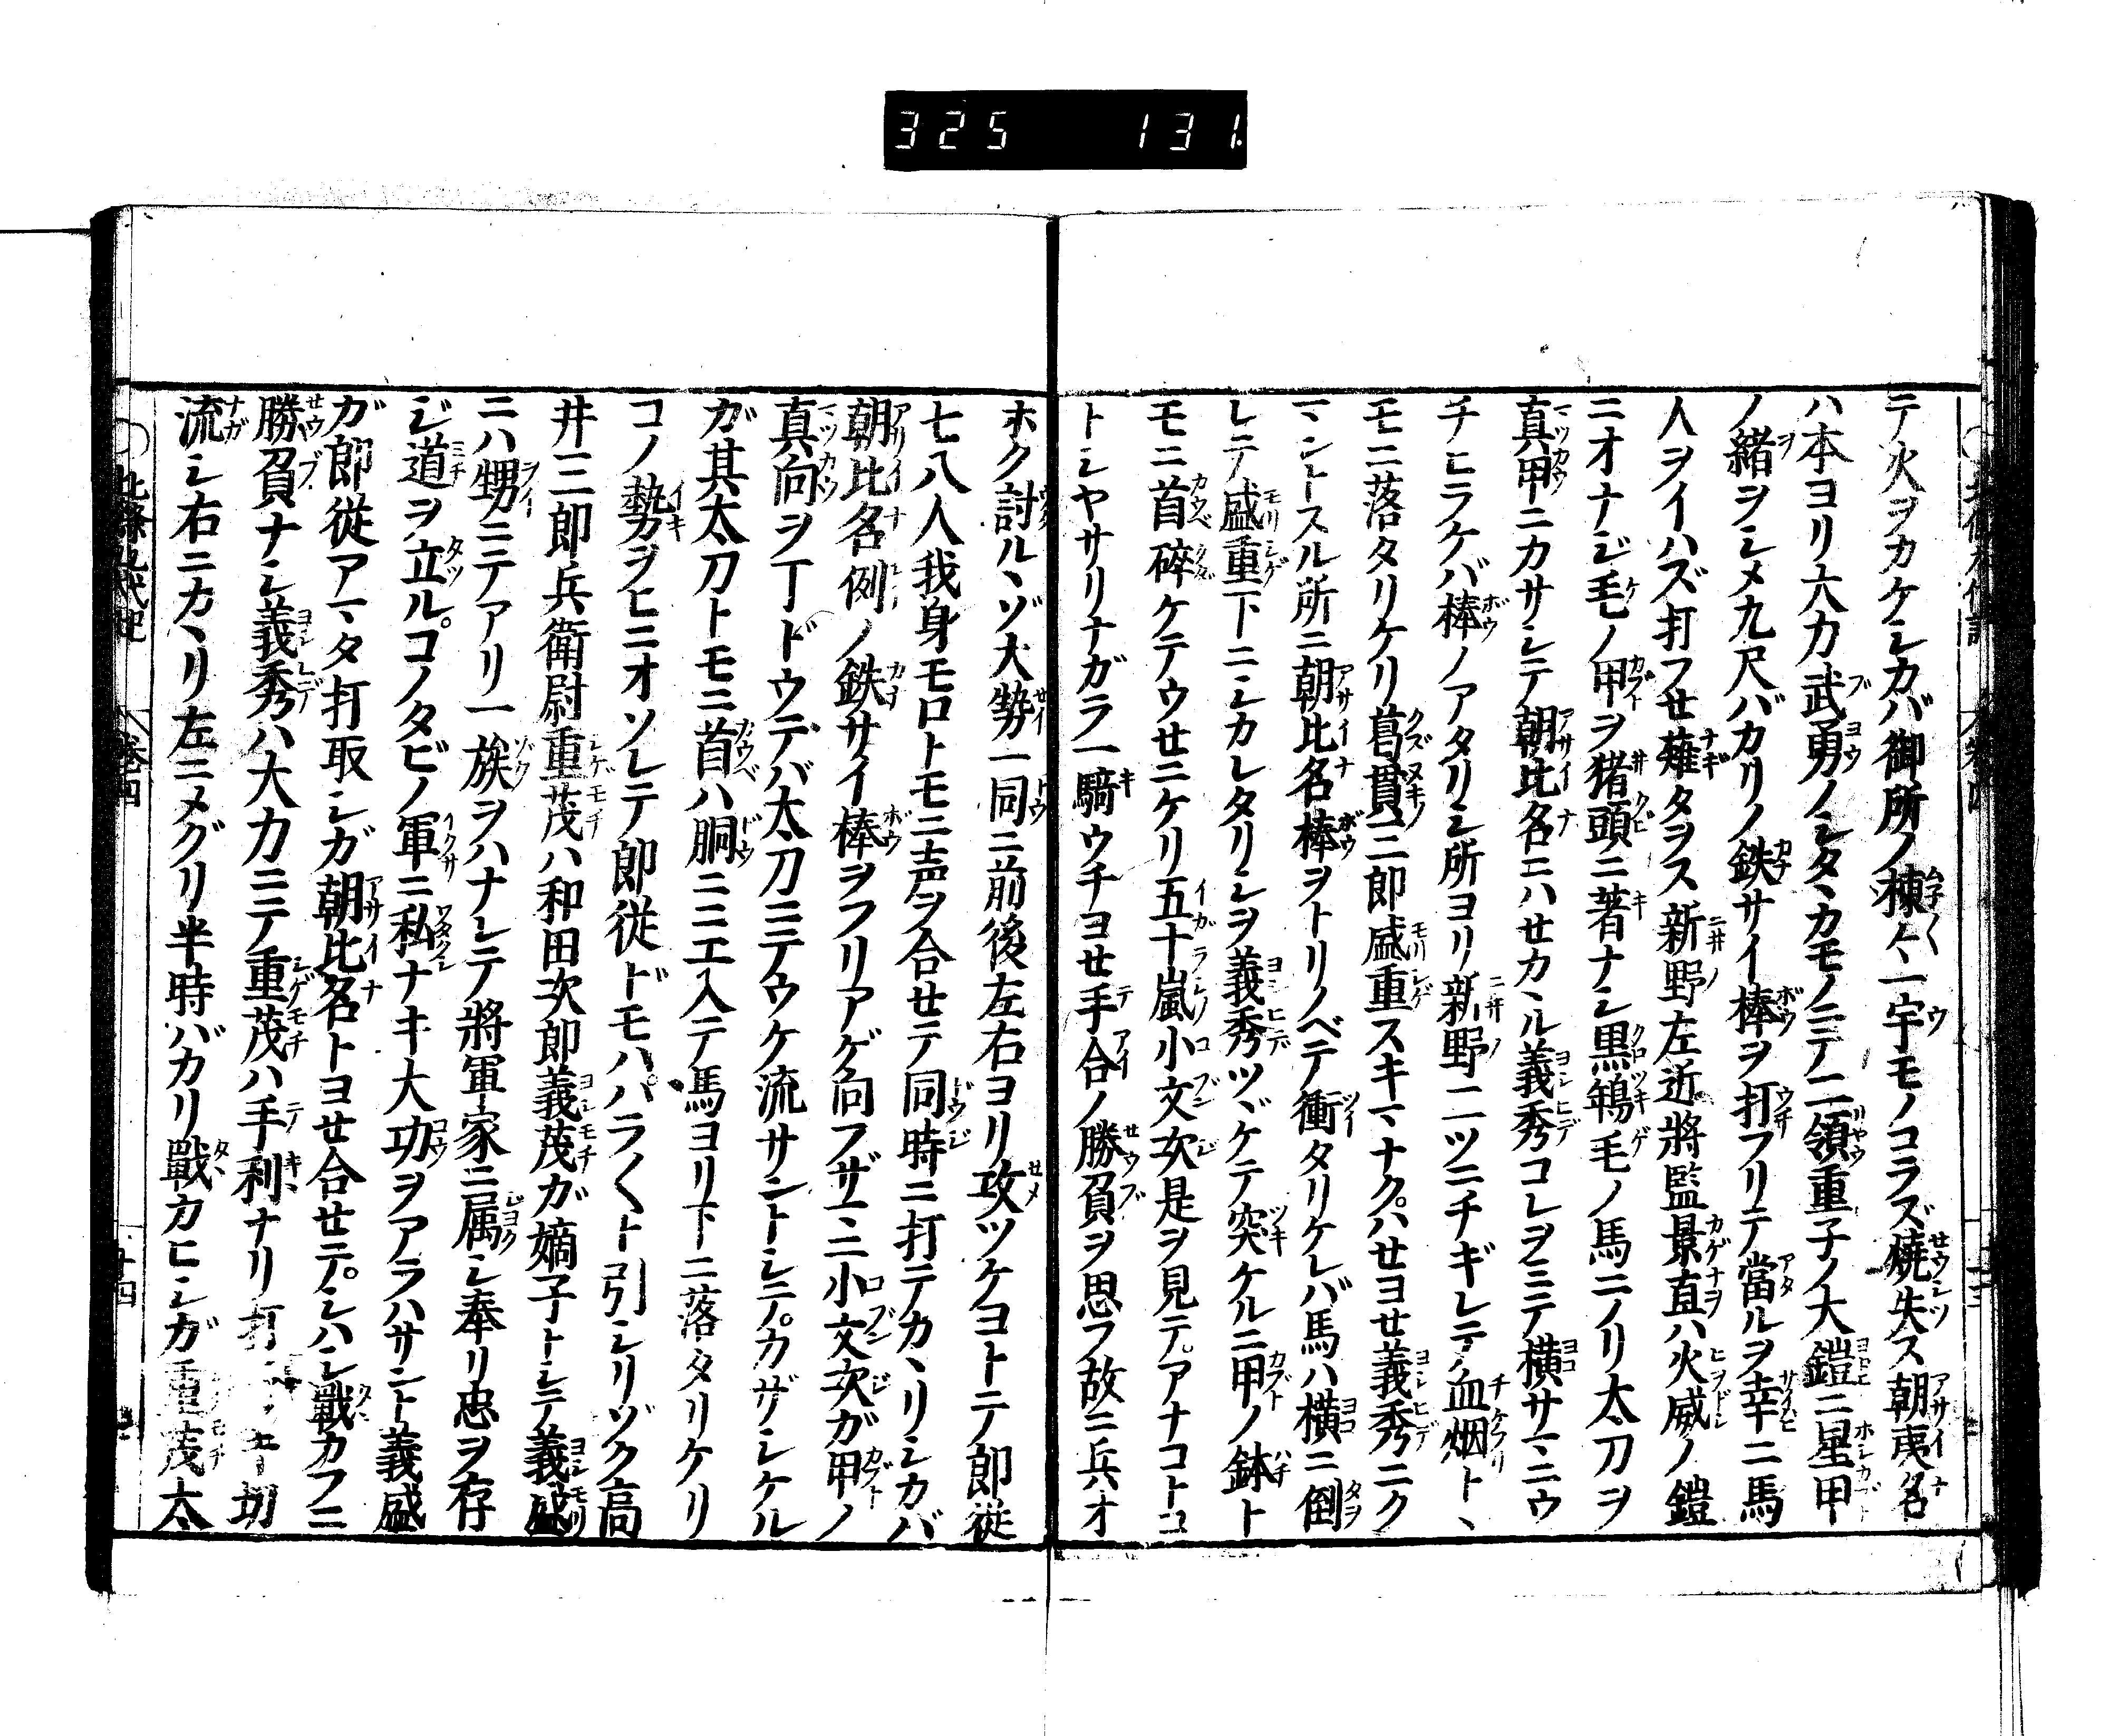 325 131.
テ火ヲカケシカバ御所ノ棟々一宇モノコラズ焼失ス朝夷名
ハ本ヨリ大力武勇ノシタヽカモノニテ二領重子ノ大鎧ニ星甲
ノ緒ヲシメ九尺バカリノ鉄サイ棒ヲ打フリテ當ルヲ幸ニ馬
人ヲイハズ打フせ薙タヲス新野左近將監景直ハ火威ノ鎧
ニオナジ毛ノ甲ヲ猪頭ニ著ナシ黒鴾毛ノ馬ニノリ太刀ヲ
真甲ニカサシテ朝比名ニハせカヽル義秀コレヲミテ横サマニウ
チヒラケバ棒ノアタリシ所ヨリ新野二ツニチギレテ血烟トヽ
モニ落タリケリ葛貫三郎盛重スキマナクハせヨせ義秀ニク
マントスル所ニ朝比名棒ヲトリノベテ衝タリケレバ馬ハ横ニ倒
レテ盛重下ニシカレタリシヲ義秀ツヾケテ突ケルニ甲ノ鉢ト
モニ首碎ケテウせニケリ五十嵐小文次是ヲ見テアナコトコ
トシヤサリナガラ一騎ウチヨせ手合ノ勝負ヲ思フ故ニ兵オ
ホク討ルヽゾ大勢一同ニ前後左右ヨリ攻ツケヨトテ郎従
七八人我身モロトモニ声ヲ合せテ同時ニ打テカヽリシカバ
朝比名例ノ鉄サイ棒ヲフリアゲ向フザマニ小文次ガ甲ノ
真向ヲ丁ドウデバ太刀ニテウケ流サントシテカザシケル
ガ其太刀トモニ首ハ胴ニニエ入テ馬ヨリ下ニ落タリケリ
コノ勢ヲヒニオソレテ郎従ドモハバラ〱ト引シリゾク高
井三郎兵衛尉重茂ハ和田次郎義茂ガ嫡子トシテ義盛
ニハ甥ニテアリ一族ヲハナレテ將軍家ニ属シ奉リ忠ヲ存
ジ道ヲ立ルコノタビノ軍ニ私ナキ大功ヲアラハサント義盛
ガ郎従アマタ打取シガ朝比名トヨせ合せテシハシ戰カフニ
勝負ナシ義秀ハ大力ニテ重茂ハ手利ナリ打切
流シ右ニカヽリ左ニメグリ半時バカリ戰カヒシガ重茂太
北條九代記 卷四 十四